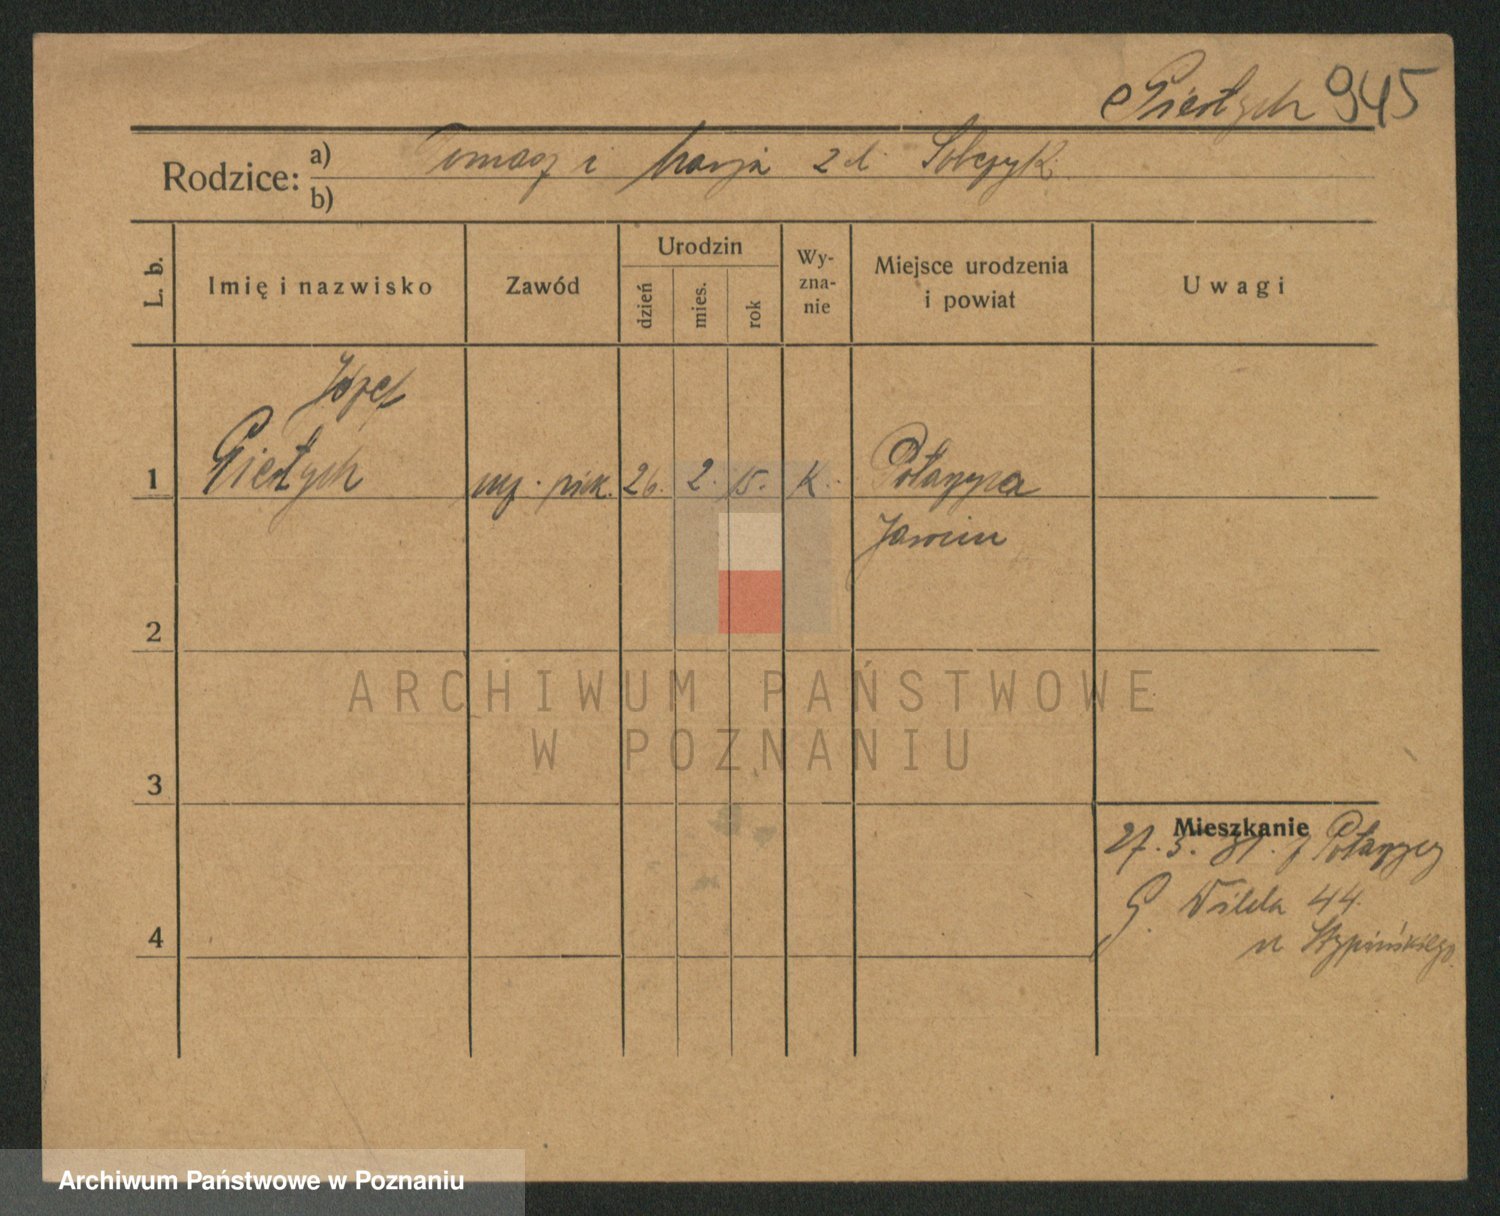 Giertych 945
Rodzice: a) Tomasz i Marja z d. Sobczyk
b)
L. b.
Imię i nazwisko
Zawód
Urodzin
dzień
mies.
rok
Wy-
zna-
nie
Miejsce urodzenia
i powiat
Uwagi
Józef
1 Giertych piek. 26. 2. 15. K.
2
3
4
Mieszkanie
27. 5. 31. z
G. Wilda 44
u Stypińskiego
ARCHIWUM PAŃSTWOWE
W POZNANIU
Archiwum Państwowe w Poznaniu